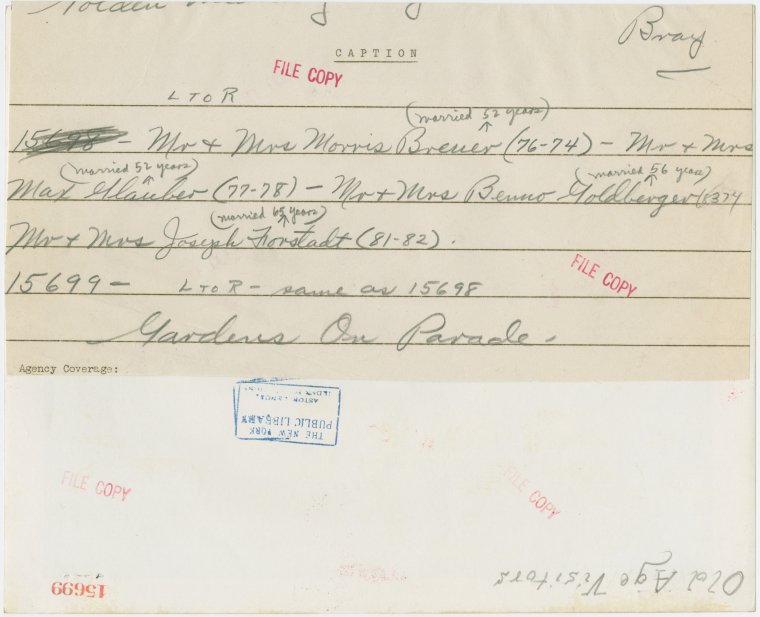 Golden
Bray
CAPTION
FILE COPY
L TO R
(married 52 years)
15698 - Mr + Mrs Morris Breuer (76-74) - Mr + Mrs
(married 52 years) (married 56 years)
Max Glauber (77-78) - Mr + Mrs Benno Goldberger
(married 65 years)
Mr + Mrs Joseph Forstadt (81-82).
FILE COPY
15699 - L TO R - same as 15698
Gardens On Parade.
Agency Coverage:
THE NEW YORK
PUBLIC LIBRARY
ASTOR, LENOX,
FILE COPY
FILE COPY
Old Age Visitors
15699